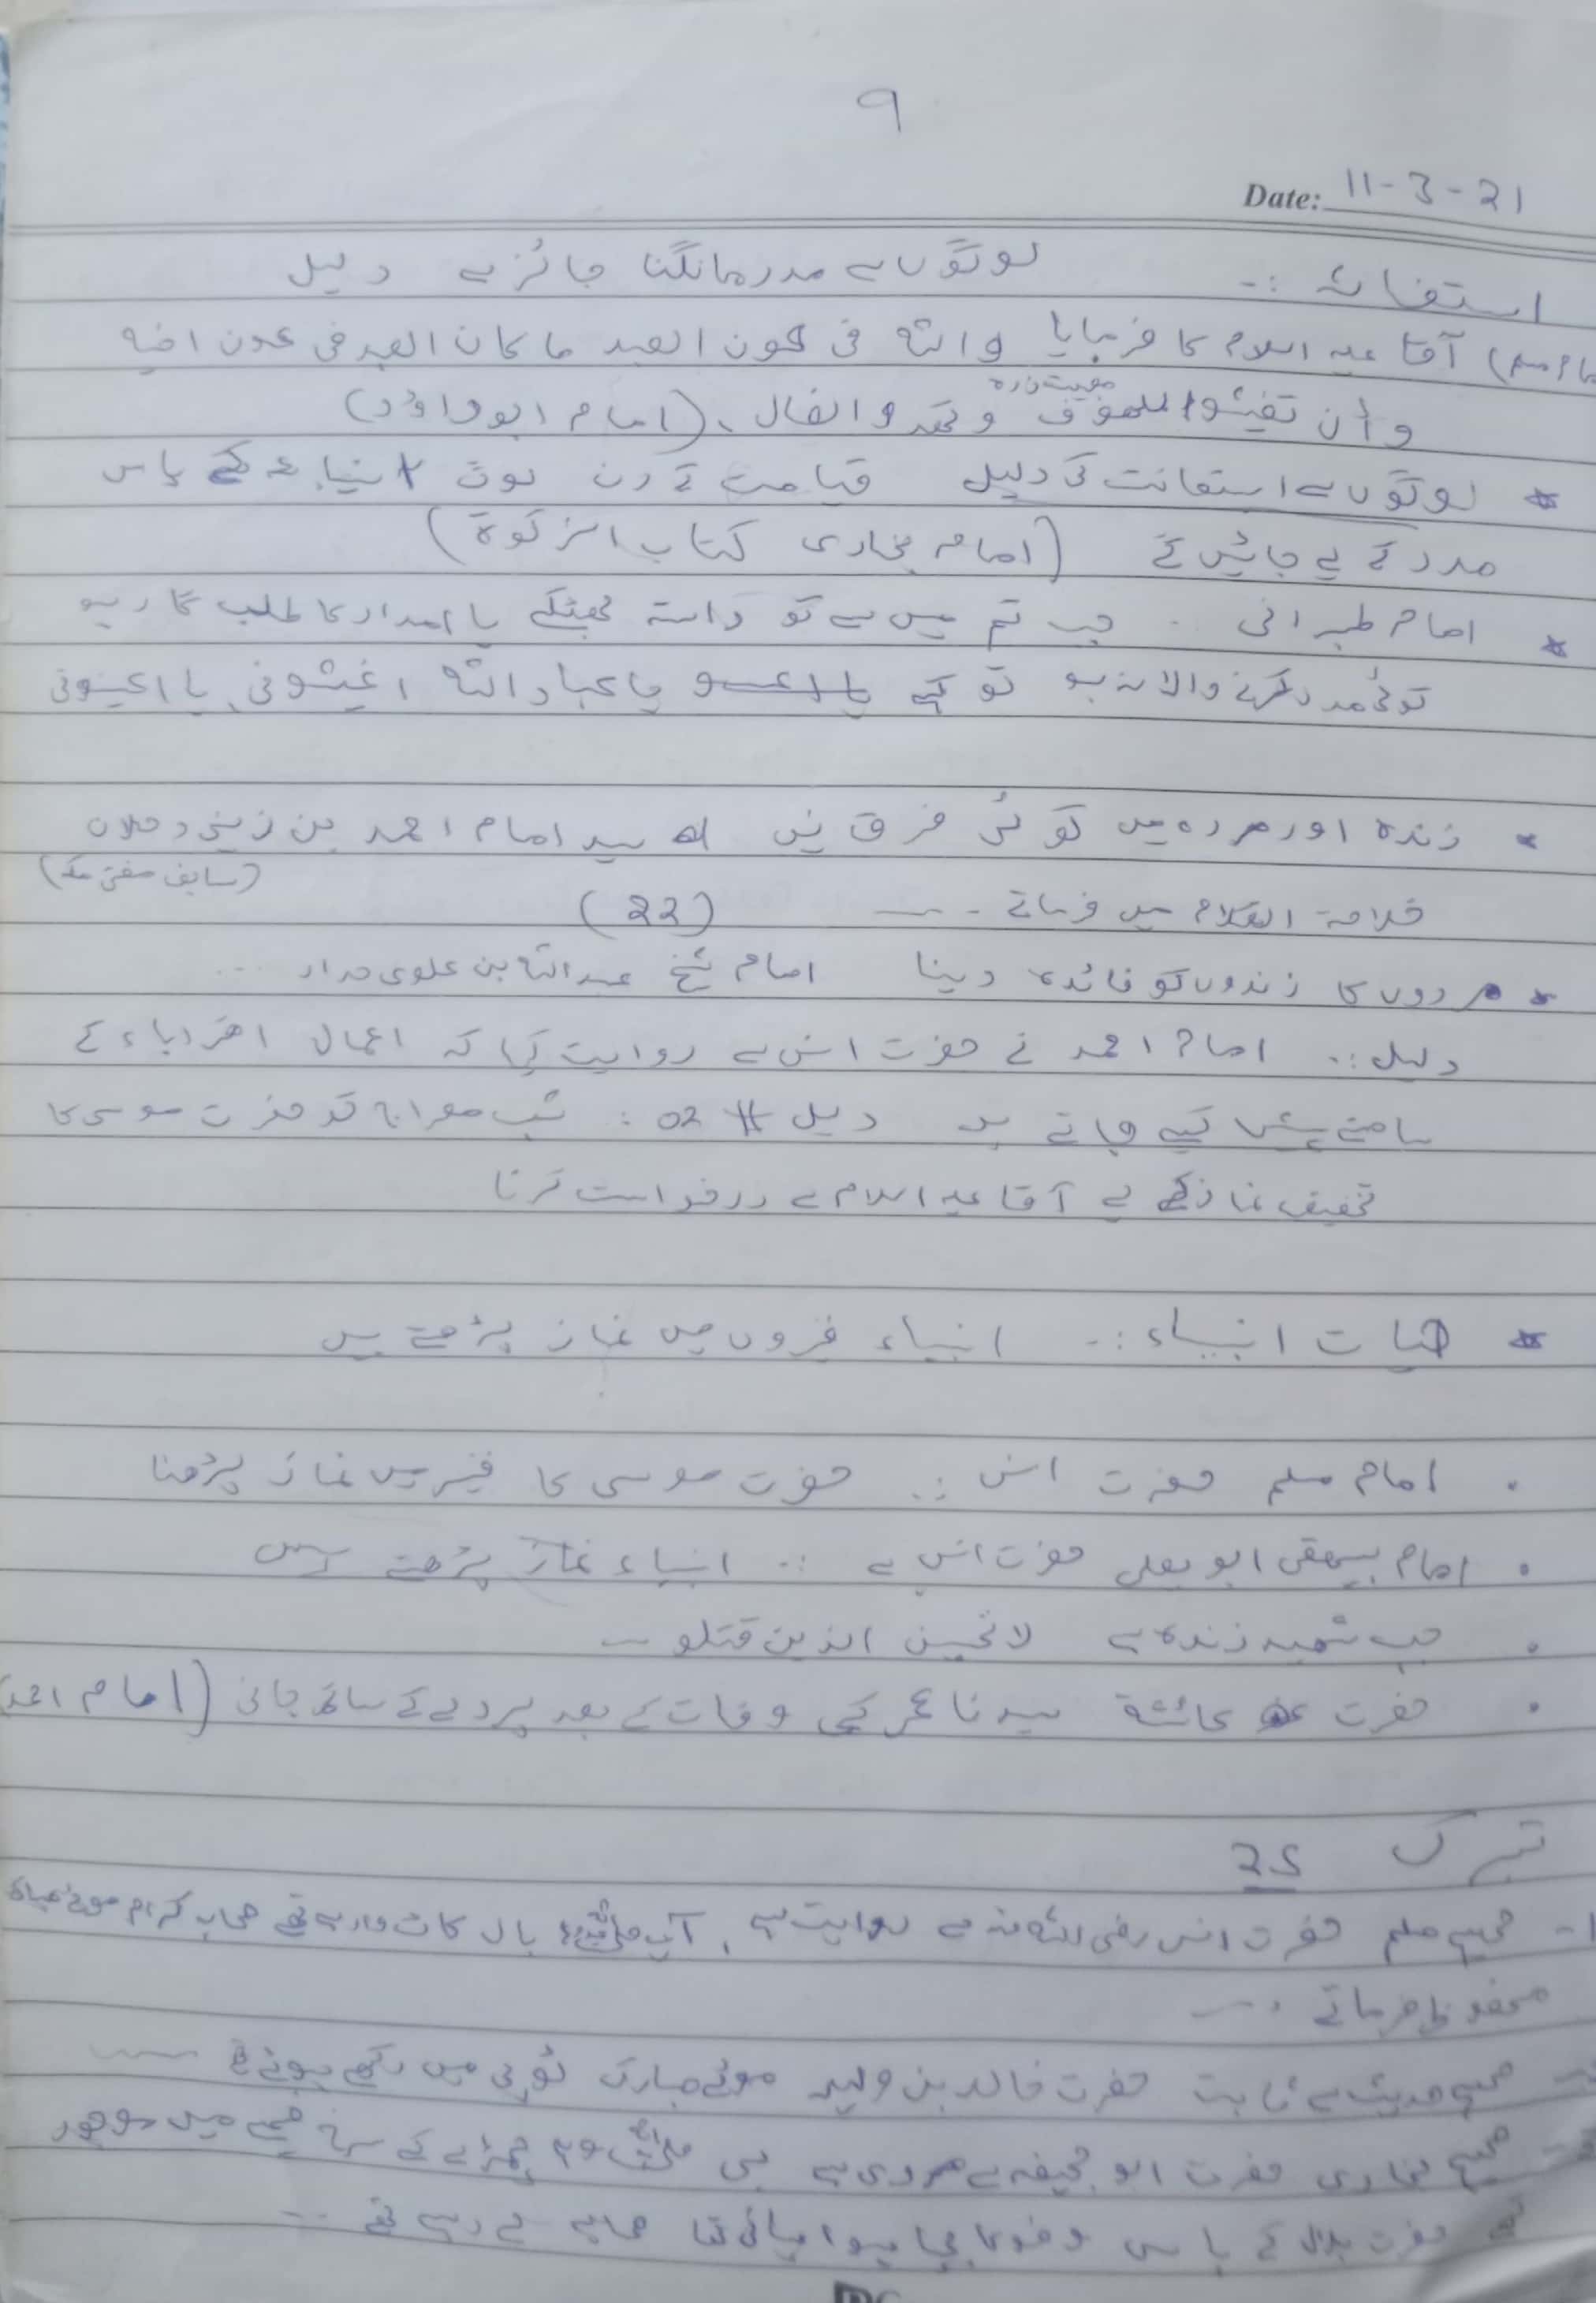 ۹
Date: 11-3-21
استغاثہ :۔ لوگوں سے مدد مانگنا جائز ہے دلیل
(امام مسلم) آقا علیہ اسلام کا فرمایا واللہ فی عون العبد ما کان العبد فی عون اخیہ
وأن تغیثوا الملھوف مصیبت زدہ و الضال ۔ (امام ابوداؤد)
* لوگوں سے استعانت کی دلیل قیامت کے دن لوگ انبیاء کے پاس
مدد کے لیے جائیں گے (امام بخاری کتاب الزکوۃ)
* امام طبرانی ۔۔ جب تم میں سے کو راستہ بھٹکے یا امداد کا طلب گار ہو
کوئی مدد کرنے والا نہ ہو تو کہے یا عباد اللہ اغیثونی یا اعینونی
* زندہ اور مردہ میں کوئی فرق نہیں سید امام احمد بن زینی دحلان
(سابق مفتی مکہ)
خلاصۃ الکلام میں فرماتے ۔۔۔ (22)
* مردوں کا زندوں کو فائدہ دینا امام شیخ عبداللہ بن علوی حداد ...
دلیل :۔ امام احمد نے حضرت انس سے روایت کیا کہ اعمال اقرباء کے
سامنے پیش کیے جاتے ہیں دلیل # 02 : شب معراج کو حضرت موسی کا
تخفیف نماز کے لیے آقا علیہ اسلام سے درخواست کرنا
* حیات انبیاء :۔ انبیاء قبروں میں نماز پڑھتے ہیں
. امام مسلم حضرت انس :۔ حضرت موسی کا قبر میں نماز پڑھنا
. امام بیھقی ابو یعلی حضرت انس سے :۔ انبیاء نماز پڑھتے ہیں
. جب شھید زندہ ہے لا تحسبن الذین قتلو ۔۔
. حضرت عائشۃ سیدنا عمر کی وفات کے بعد پردے کے ساتھ جاتی (امام احمد)
تبرک 25
1- صحیح مسلم حضرت انس رضی اللہ عنہ سے روایت ہے ، آپ ﷺ بال کاٹ وا رہے تھے صحابہ کرام موئے مبارک
محفوظ فرماتے ۔۔۔
صحیح حدیث سے ثابت حضرت خالد بن ولید موئے مبارک ٹوپی میں رکھے ہوئے تھے ۔۔۔
صحیح بخاری حضرت ابو جحیفہ سے مروی ہے نبی ﷺ چمڑے کے سرخ خیمے میں موجود
تھے حضرت بلال کے پاس وضو کا بچا ہوا پانی تھا صحابہ لے رہے تھے ۔۔۔